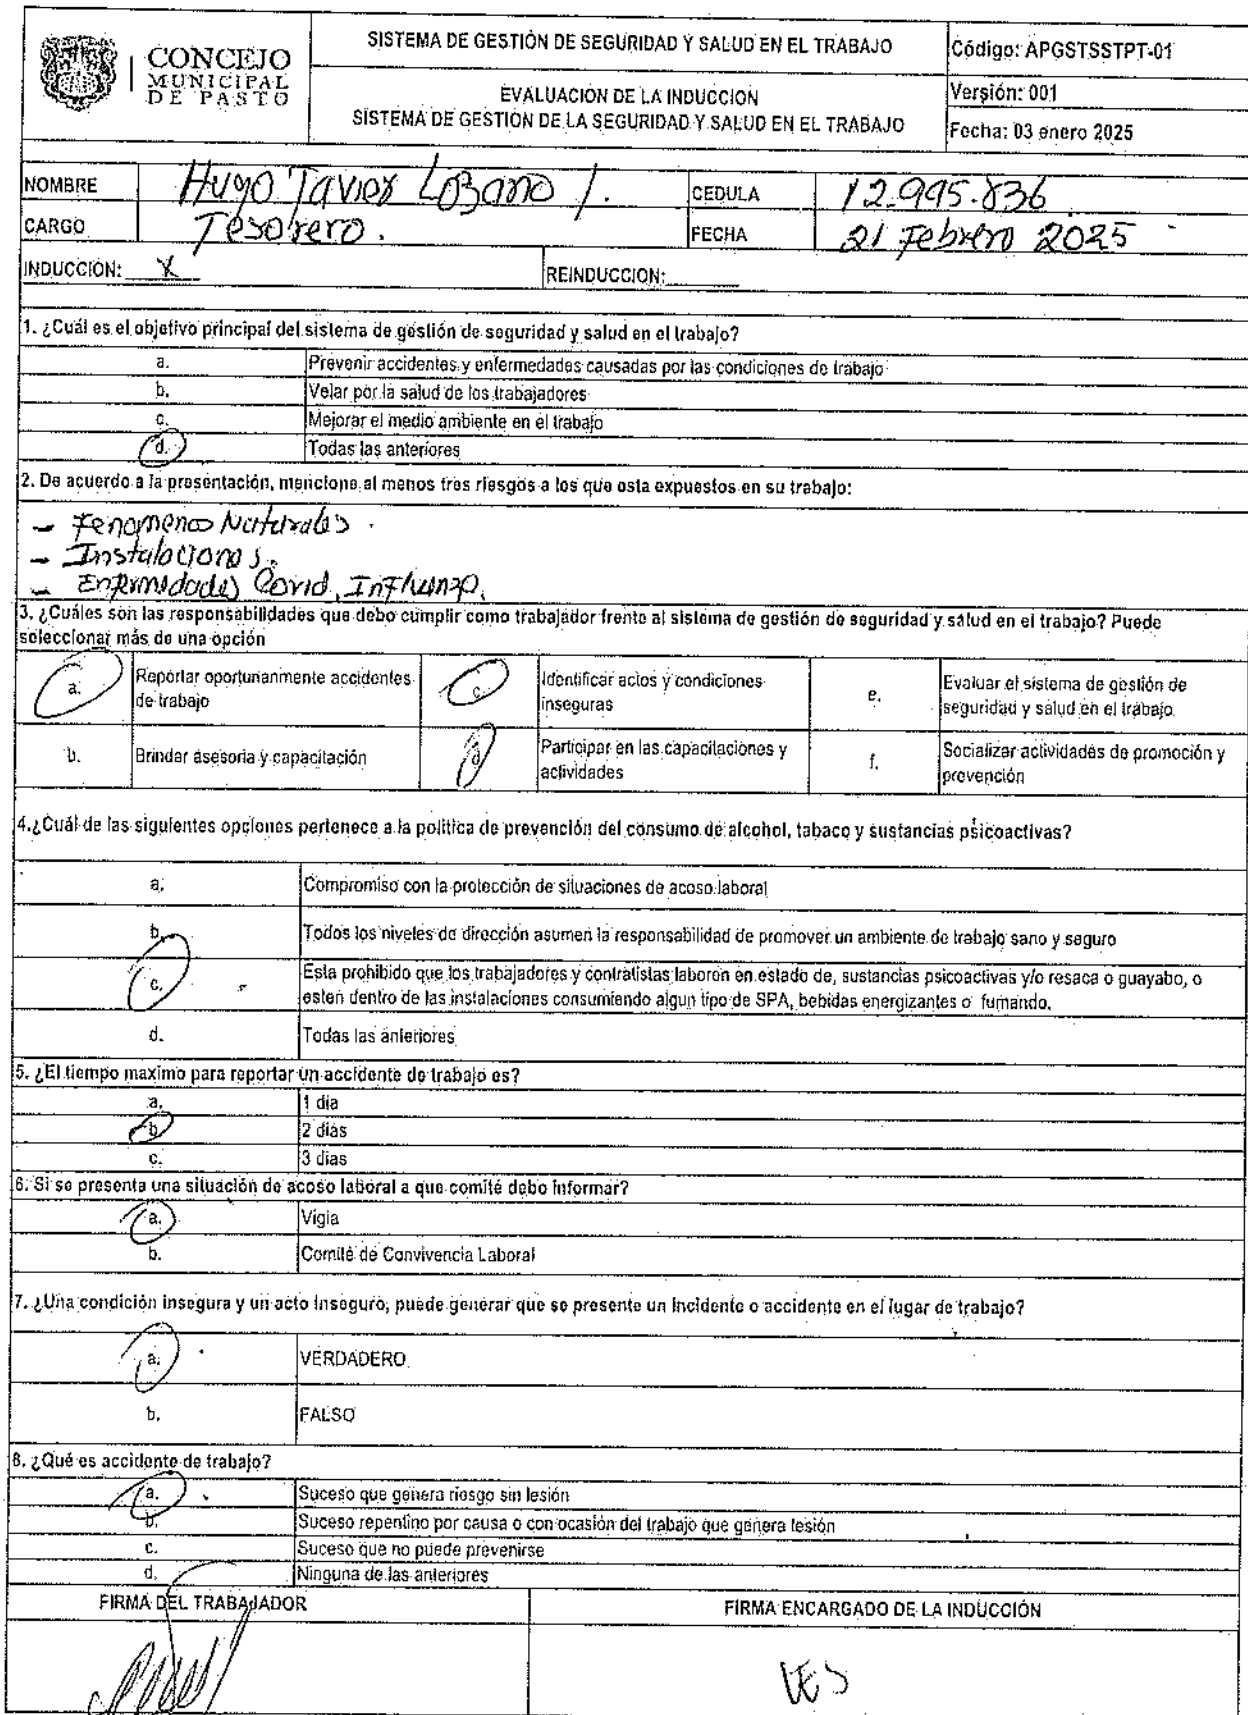 CONCEJO
MUNICIPAL
DE PASTO
SISTEMA DE GESTIÓN DE SEGURIDAD Y SALUD EN EL TRABAJO
Código: APGSTSSTPT-01
EVALUACIÓN DE LA INDUCCION
SISTEMA DE GESTIÓN DE LA SEGURIDAD Y SALUD EN EL TRABAJO
Versión: 001
Fecha: 03 enero 2025
NOMBRE Hugo Javier Lozano I. CEDULA 12.995.836
CARGO Tesorero. FECHA 21 Febrero 2025
INDUCCIÓN: X REINDUCCION:
1. ¿Cuál es el objetivo principal del sistema de gestión de seguridad y salud en el trabajo?
a. Prevenir accidentes y enfermedades causadas por las condiciones de trabajo
b. Velar por la salud de los trabajadores
c. Mejorar el medio ambiente en el trabajo
d. Todas las anteriores
2. De acuerdo a la presentación, mencione al menos tres riesgos a los que esta expuestos en su trabajo:
- Fenomenos Naturales.
- Instalaciones.
- Enfermedades Covid, Influenza.
3. ¿Cuáles son las responsabilidades que debo cumplir como trabajador frente al sistema de gestión de seguridad y salud en el trabajo? Puede
seleccionar más de una opción
a. Reportar oportunanmente accidentes
de trabajo
c. Identificar actos y condiciones
inseguras
e. Evaluar el sistema de gestión de
seguridad y salud en el trabajo.
b. Brindar asesoria y capacitación
d Participar en las capacitaciones y
actividades
f. Socializar actividades de promoción y
prevención
4.¿Cuál de las siguientes opciones pertenece a la política de prevención del consumo de alcohol, tabaco y sustancias psicoactivas?
a. Compromiso con la protección de situaciones de acoso laboral
b. Todos los niveles de dirección asumen la responsabilidad de promover un ambiente de trabajo sano y seguro
c. Esta prohibido que los trabajadores y contratistas laboren en estado de, sustancias psicoactivas y/o resaca o guayabo, o
esten dentro de las instalaciones consumiendo algun tipo de SPA, bebidas energizantes o fumando.
d. Todas las anteriores
5. ¿El tiempo maximo para reportar un accidente de trabajo es?
a. 1 dia
b. 2 dias
c. 3 dias
6. Si se presenta una situación de acoso laboral a que comité debo informar?
a. Vigia
b. Comité de Convivencia Laboral
7. ¿Una condición insegura y un acto inseguro, puede generar que se presente un incidente o accidente en el lugar de trabajo?
a. VERDADERO
b. FALSO
8. ¿Qué es accidente de trabajo?
a. Suceso que genera riesgo sin lesión
b. Suceso repentino por causa o con ocasión del trabajo que genera lesión
c. Suceso que no puede prevenirse
d. Ninguna de las anteriores
FIRMA DEL TRABAJADOR FIRMA ENCARGADO DE LA INDUCCIÓN